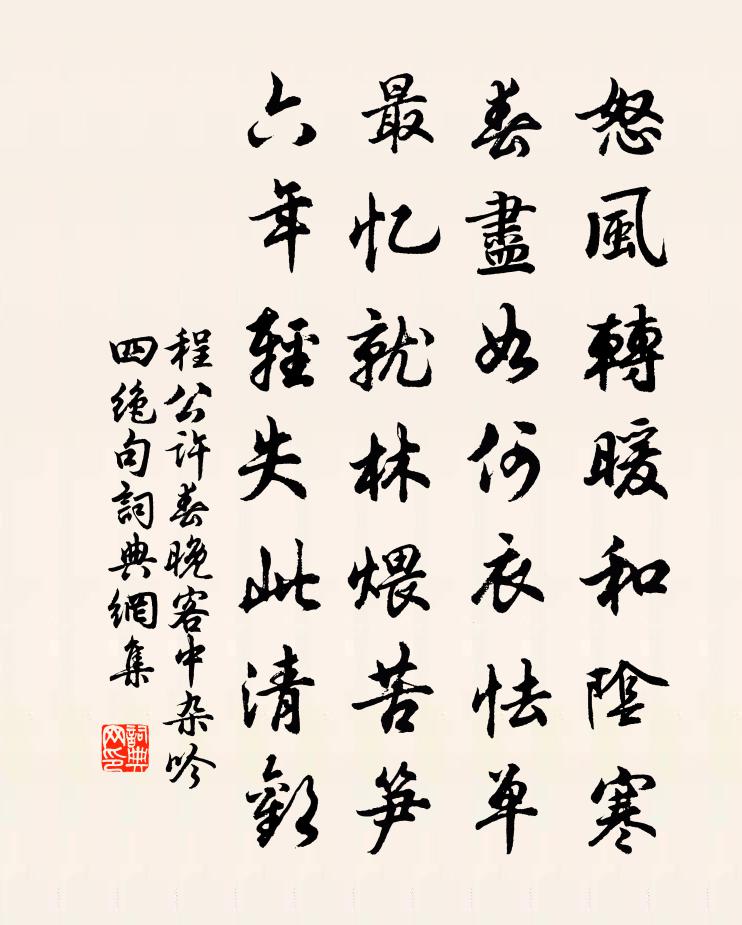 怒風轉暖和陰寒
春盡如何衣怯單
最忆就林煨苦笋
六年輕失此清歡
程公许春晚客中杂吟
四絶句詞典網集
詞典网印